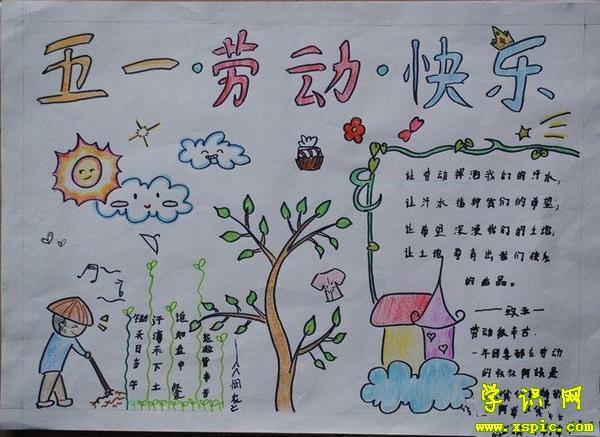 五一·劳动·快乐
让劳动挥洒我们的汗水,
让汗水播种我们的希望,
让希望深浸我们的土地,
让土地孕育出我们快乐
的品。
——致五一
劳动很辛苦
一年四季都在劳动
的叔叔阿姨是
锄禾日当午
汗滴禾下土
谁知盘中餐
粒粒皆辛苦
——《悯农》
学识网
www.xspic.com